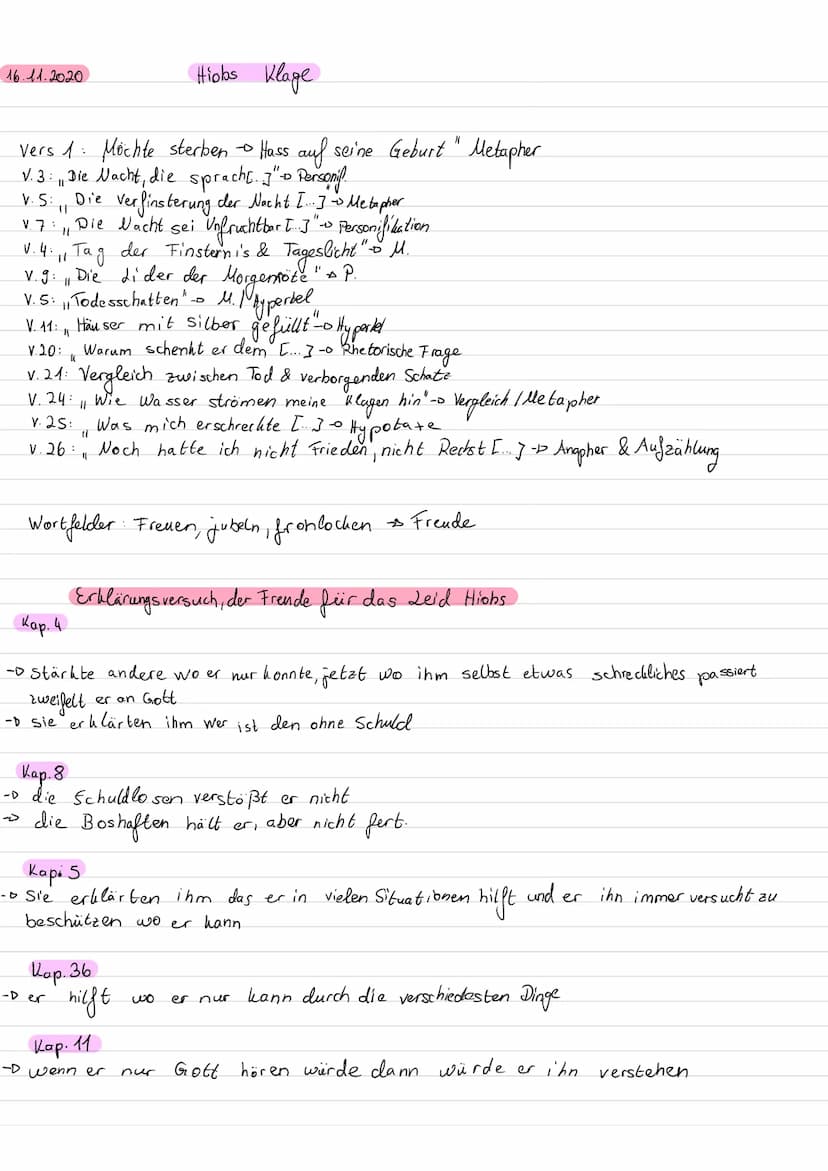 16.11.2020
Hiobs Klage
Vers 1: Möchte sterben → Hass auf seine Geburt" Metapher
V. 3: „Die Nacht, die sprach[..]"→ Personif.
V. 5: „Die Verfinsterung der Nacht [...]"→ Metapher
V. 7: „Die Nacht sei Unfruchtbar [...]"→ Personifikation
V. 4: „Tag der Finsternis & Tageslicht"→ M.
V. 9: „Die Lider der Morgenröte" → P.
V. 5: „Todesschatten"→ M. / Hyperbel
V. 11: „Häuser mit Silber gefüllt"→ Hyperbel
V 20: „Warum schenkt er dem [...] → Rhetorische Frage
V. 21: Vergleich zwischen Tod & verborgenden Schatz
V. 24: „Wie Wasser strömen meine Klagen hin"→ Vergleich / Metapher
V. 25: „Was mich erschreckte [...] → Hypotaxe
V. 26: „Noch hatte ich nicht Frieden, nicht Rast [...] → Anapher & Aufzählung
Wortfelder: Freuen, jubeln, frohlocken → Freude
Erklärungsversuch, der Freunde für das Leid Hiobs
Kap. 4
→ Stärkte andere wo er nur konnte, jetzt wo ihm selbst etwas schreckliches passiert
zweifelt er an Gott
→ sie erklärten ihm wer ist den ohne Schuld
Kap. 8
→ die Schuldlosen verstößt er nicht
→ die Boshaften hält er, aber nicht fest.
Kapi 5
→ Sie erklärten ihm das er in vielen Situationen hilft und er ihn immer versucht zu
beschützen wo er kann
Kap. 36
→ er hilft wo er nur kann durch die verschiedesten Dinge
Kap. 11
→ wenn er nur Gott hören würde dann würde er ihn verstehen